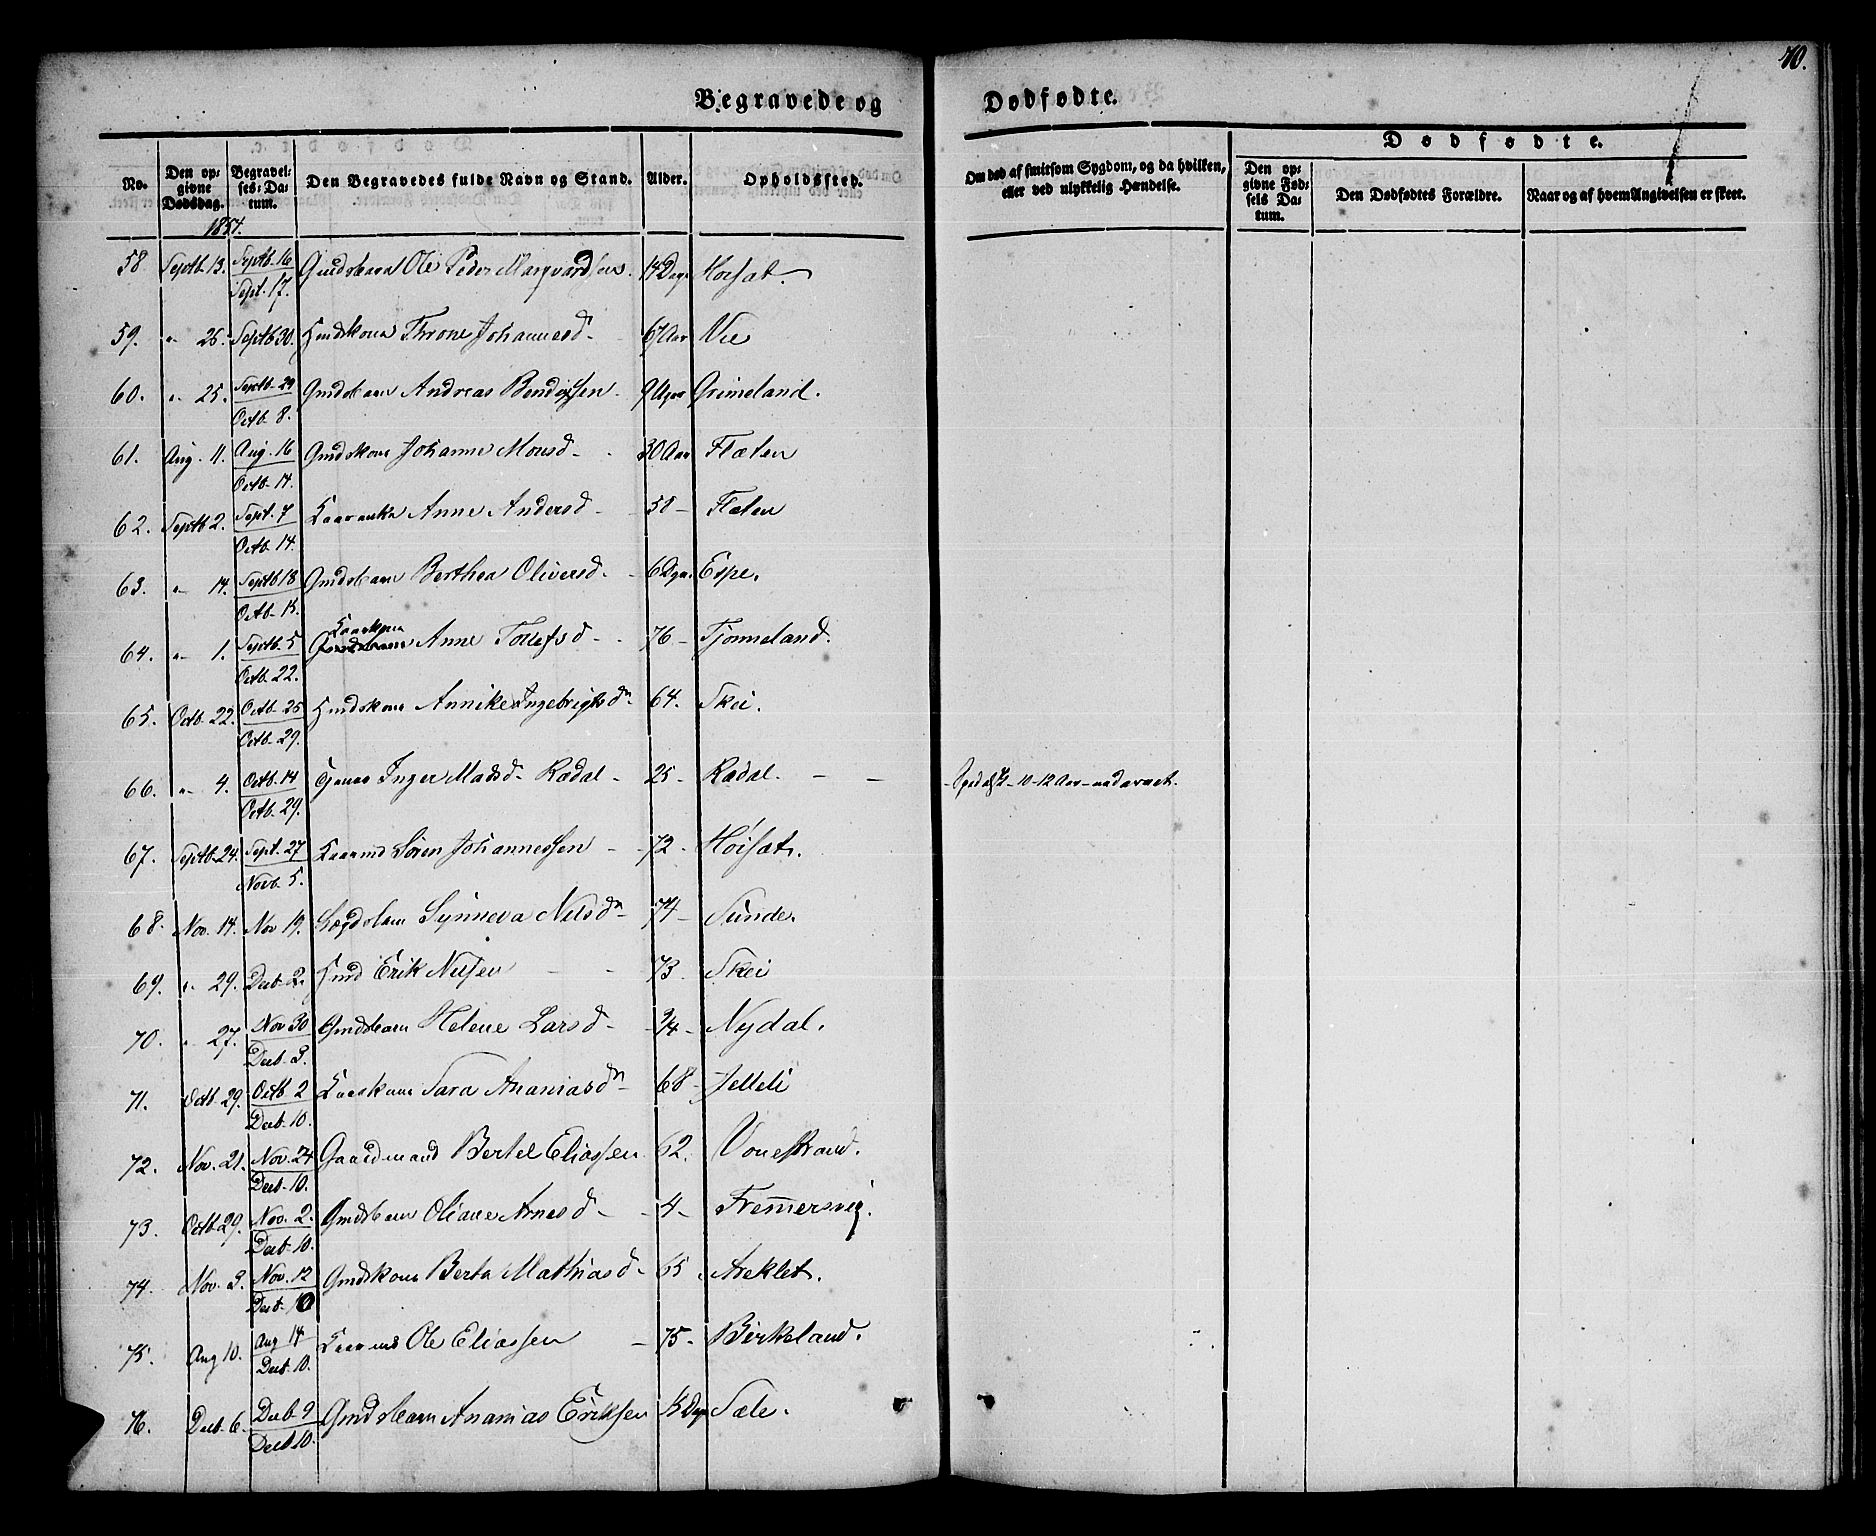 70.
Begravede og Dødfødte.
No. Den opgivne Dødsdag. Begravelses-Datum. Den Begravedes fulde Navn og Stand. Alder. Opholdssted. Om død af smitsom Sygdom, og da hvilken, eller ved ulykkelig Hændelse. Dødfødte. Den opgivne Fødsels Datum. Den Dødfødtes Forældre. Naar og af hvem Angivelsen er skeet.
1857.
58 Septb. 13. Septb. 16 Sept. 17. Ole Peder Marqvardsen. 14 Dage Høisæt.
59. " 26. Septb 30. Throne Johannesd. 67 Aar Vie
60. " 25. Septb. 29 Octb. 8. Gmdsbarn Andreas Bendixsen. 9 Uger Grimeland.
61. Aug. 11. Aug. 16 Octb. 14. Gmdskone Johanne Monsd. 30 Aar Flæten
62. Septb 2. Sept. 7 Octb. 14. Kaarenke Anne Andersd. 58 Flæten
63. " 14. Septb 18 Octb. 15. Gmdsbarn Berthea Oliversd. 6 Dge. Espe.
64. " 1. Septb. 5 Octb. 22. Kaarkone Anne Tollefsd. 76 Tjønneland.
65. Octb. 22. Octb. 25 Octb. 29. Annike Ingebrigtsdr. 64. Skei.
66. " 4. Octb. 14 Octb. 29. Inger Madsd. Rødal 25 Rødal. Spedalsk 10-12 Aar
67. Septb. 24. Sept. 27 Novb. 5. Kaarmd Søren Johannessen 72 Høisæt.
68. Nov. 14. Nov 19. Lægdslem Synneva Nilsdr 74 Sunde.
69. " 29. Decb. 2. Erik Nilsen 73 Skei
70. " 27. Nov 30 Decb. 3. Gmdsbarn Helene Larsd 3/4 Nydal.
71. Octb. 29. Octb 2 Decb. 10. Kaarkone Sara Ananiasdr 68 Jelleli
72. Nov. 21. Nov. 24 Decb. 10. Gaardmand Bertel Eliassen 62. Vonestrand.
73. Octb 29. Nov. 2. Decb. 10. Gmdsbarn Oliane Arnesd 4 Fremmersvig.
74. Nov. 3. Nov. 12 Decb. 10 Gmdskone Berta Mathiasd 65 Areklet.
75. Aug 10. Aug 14 Decb. 10. Kaarmd Ole Eliassen 75 Birkeland.
76. Decb 6. Decb. 9 Decb 10. Gmdsbarn Ananias Eriksen Sæle.